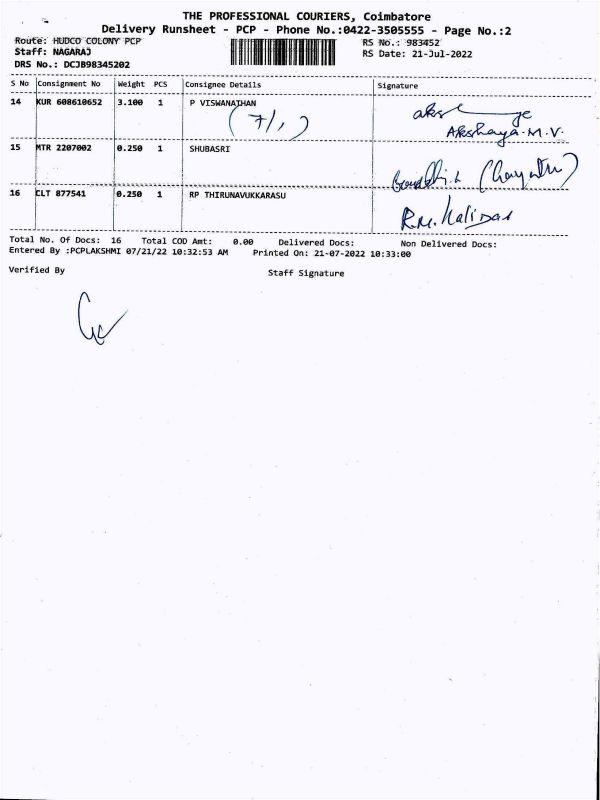 THE PROFESSIONAL COURIERS, Coimbatore
Delivery Runsheet - PCP - Phone No.:0422-3505555 - Page No.:2
Route: HUDCO COLONY PCP
RS No.: 983452
Staff: NAGARAJ
RS Date: 21-Jul-2022
DRS No.: DCJB98345202
S No Consignment No Weight PCS Consignee Details Signature
14 KUR 608610652 3.100 1 P VISWANATHAN
(7/1,)
Akshaya.M.V.
15 MTR 2207002 0.250 1 SHUBASRI
16 CLT 877541 0.250 1 RP THIRUNAVUKKARASU
R.M. Kalidas
Total No. Of Docs: 16 Total COD Amt: 0.00 Delivered Docs: Non Delivered Docs:
Entered By :PCPLAKSHMI 07/21/22 10:32:53 AM Printed On: 21-07-2022 10:33:00
Verified By Staff Signature